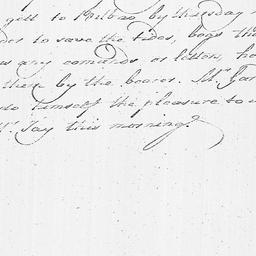 gett to Bilbao by thursday
to save the tides, begs th
any comands, or letters, he
them by the bearer. Mr. Jar
do himself the pleasure to
Mr. Jay this morning?